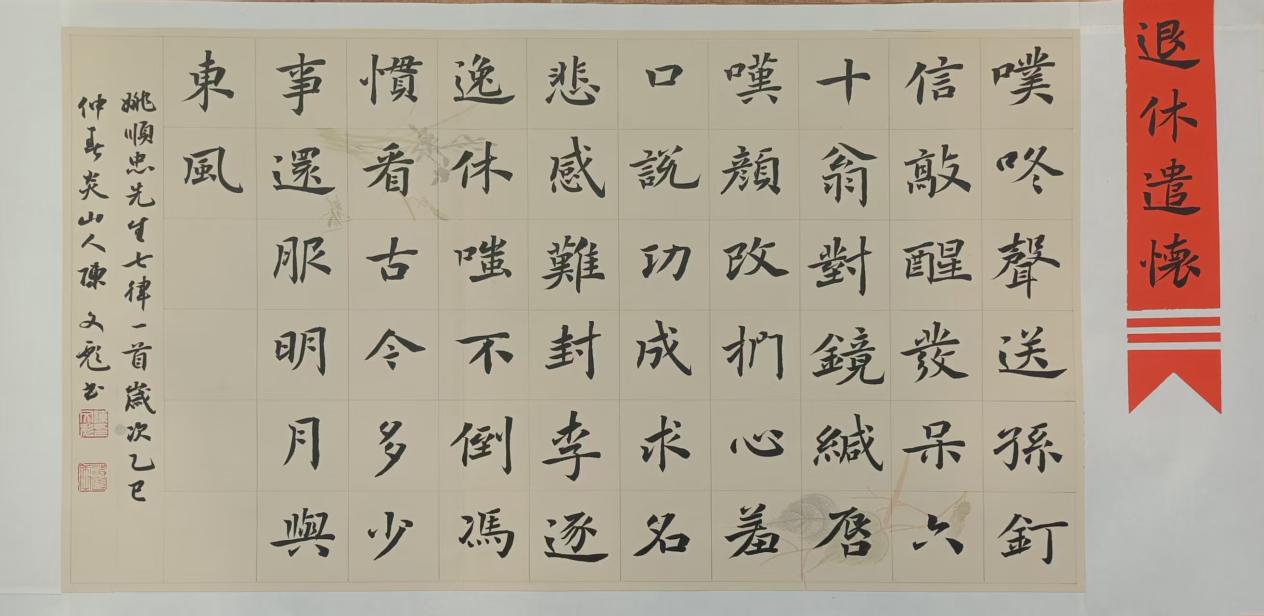 退休遣懷
噗咚聲送孫釘
信敲醒發呆六
十翁對鏡緘唇
嘆顏改捫心羞
口說功成求名
悲感難封李逐
逸休嗤不倒馮
慣看古今多少
事還服明月與
東風
姚順忠先生七律一首歲次乙巳
仲春炎山人陳文彪书